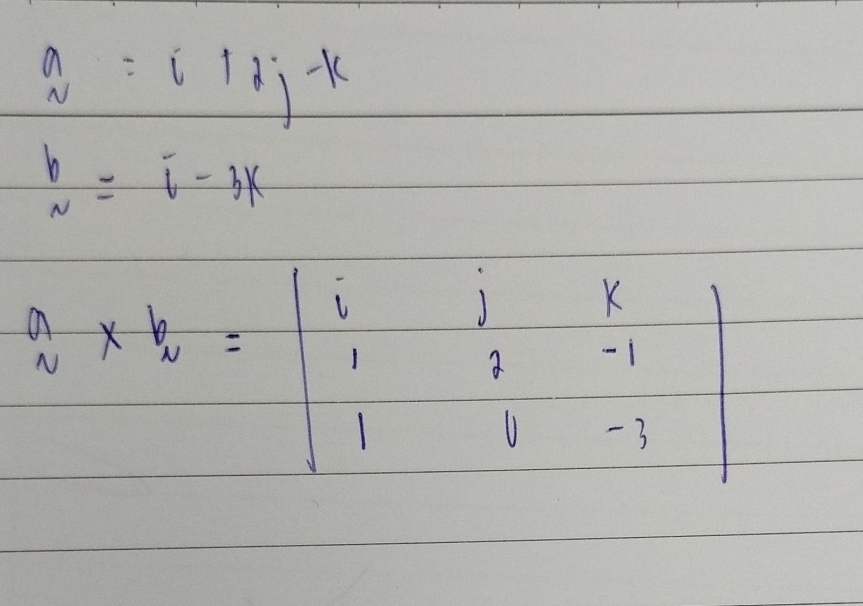 a = i + 2j - k
b = i - 3k
a × b = | i j k |
| 1 2 -1 |
| 1 0 -3 |